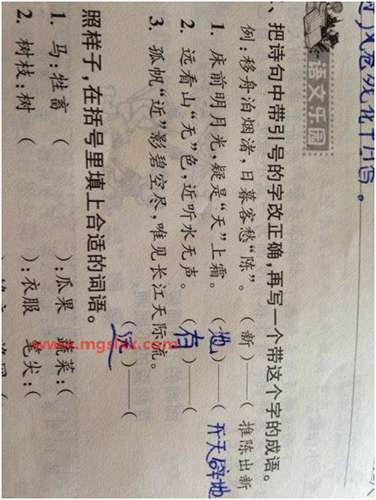 语文乐园
、把诗句中带引号的字改正确,再写一个带这个字的成语。
例:移舟泊烟渚,日暮客愁“陈”。(新) 推陈出新
1. 床前明月光,疑是“天”上霜。(地)——(开天辟地
2. 远看山“无”色,近听水无声。(有)——(
3. 孤帆“近”影碧空尽,唯见长江天际流。(远)——(
照样子,在括号里填上合适的词语。
1. 马:牲畜 ( ):瓜果 蔬菜:(
2. 树枝:树 ( ):衣服 笔尖:(